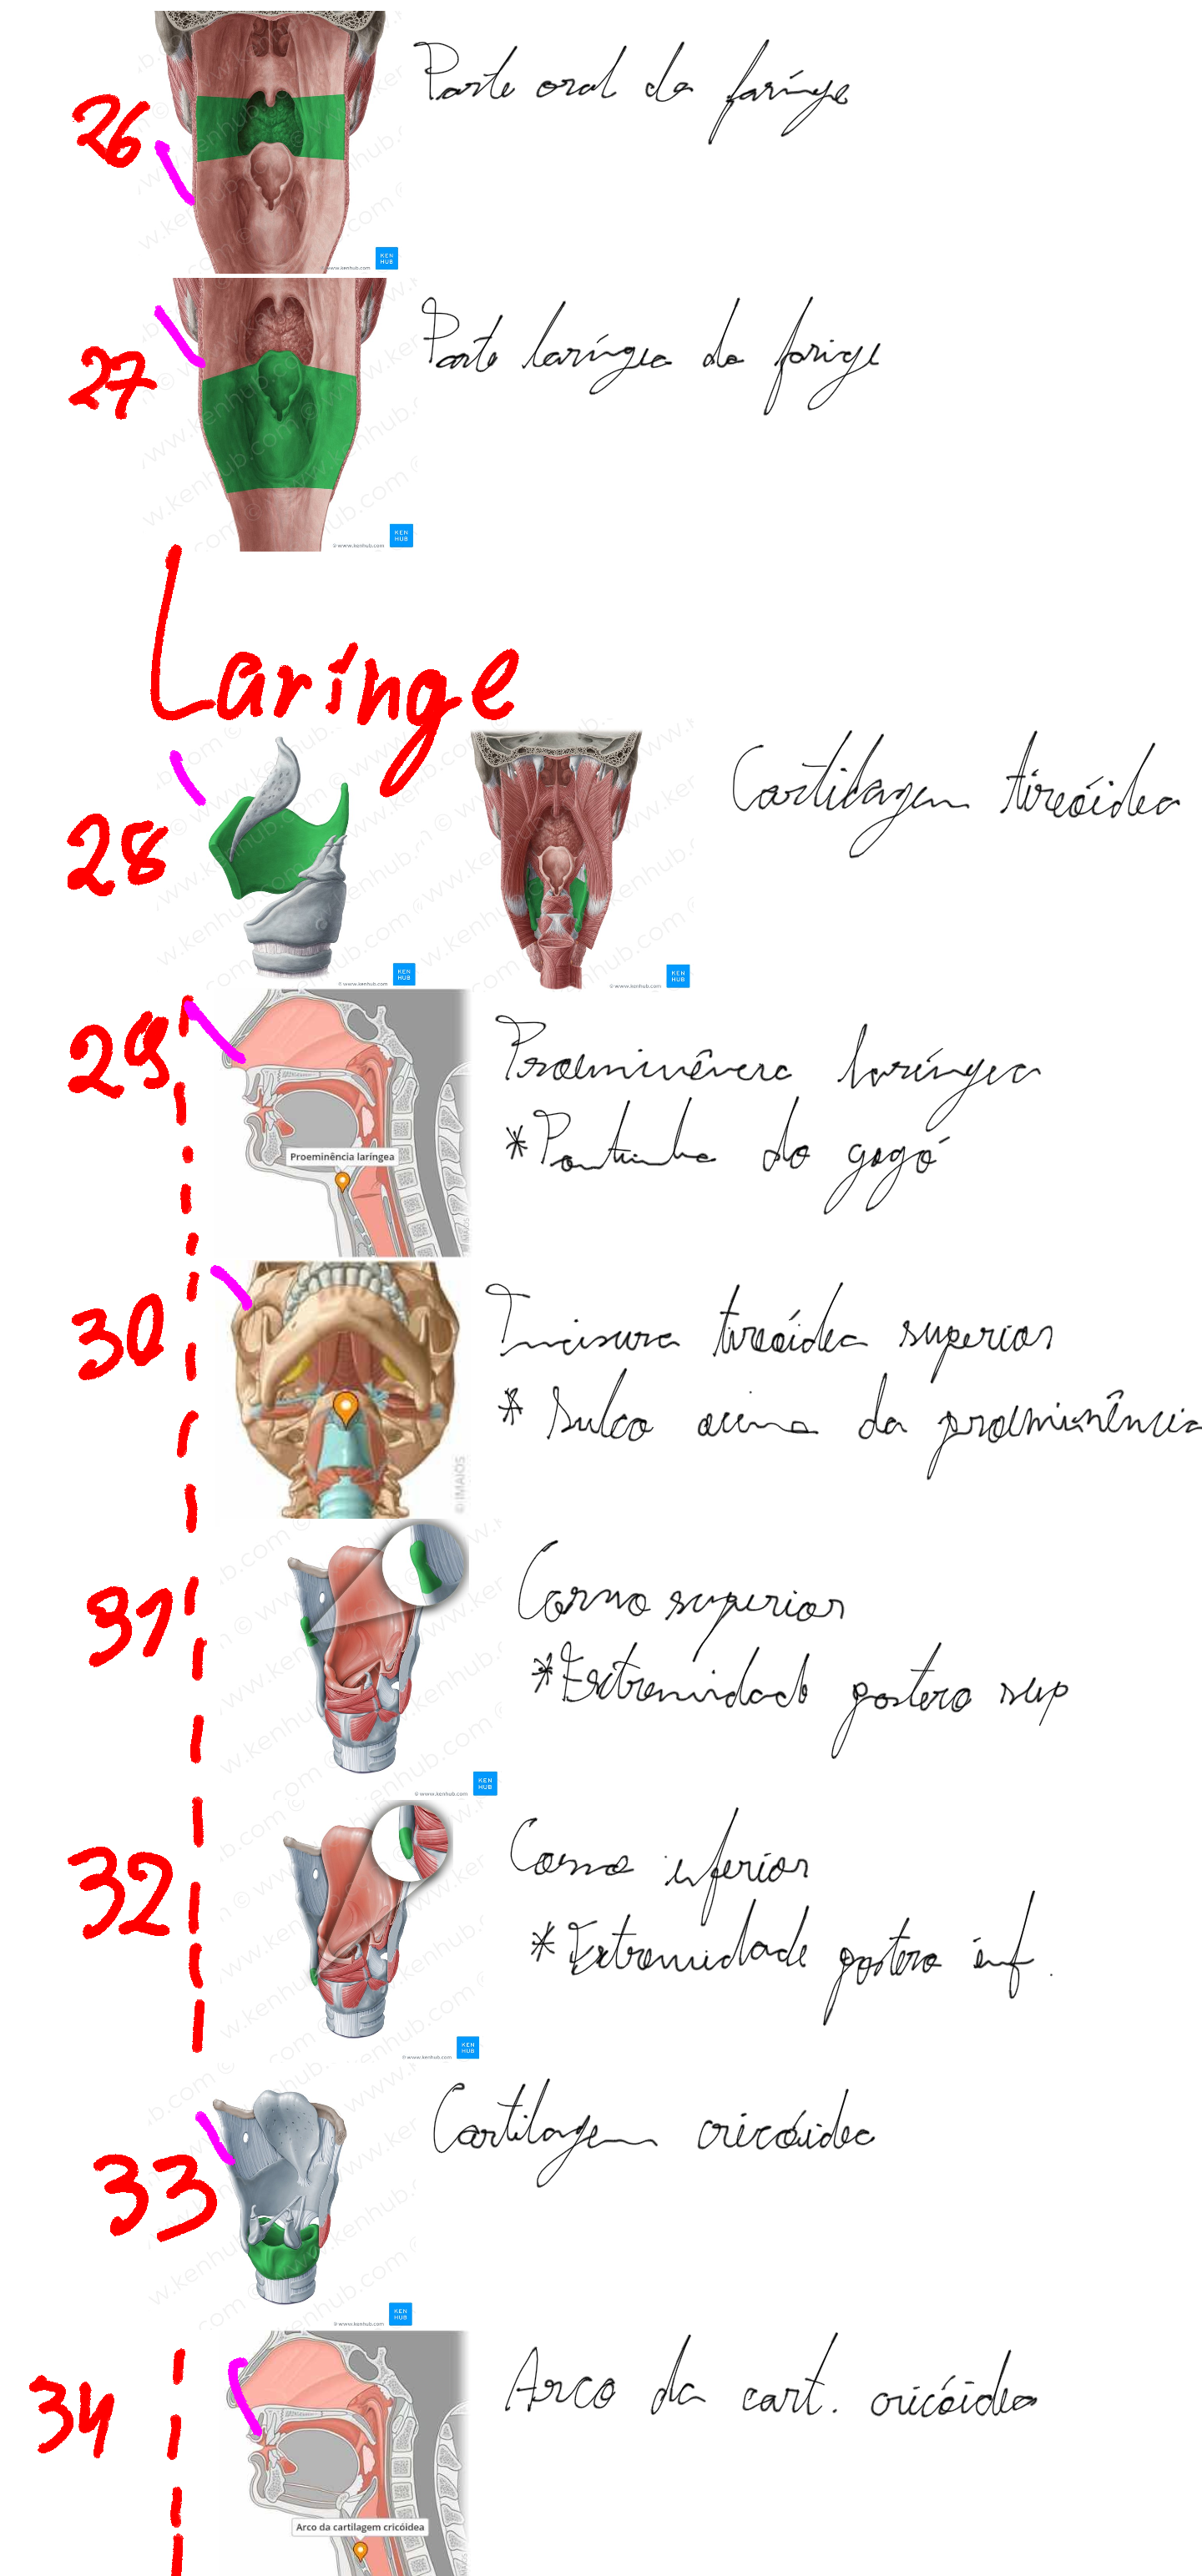 26
Parte oral da faringe
KEN
HUB
© www.kenhub.com
27
Parte laríngea da faringe
KEN
HUB
© www.kenhub.com
Laringe
28
Cartilagem tireóidea
KEN
HUB
© www.kenhub.com
KEN
HUB
© www.kenhub.com
29
Proeminência laríngea
* Pontinha do gogó
Proeminência laríngea
© IMAIOS
30
Incisura tireóidea superior
* Sulco acima da proeminência
© IMAIOS
31
Corno superior
* Extremidade postero sup
KEN
HUB
© www.kenhub.com
32
Corno inferior
* Extremidade postero inf.
KEN
HUB
© www.kenhub.com
33
Cartilagem cricóidea
KEN
HUB
© www.kenhub.com
34
Arco da cart. cricóidea
Arco da cartilagem cricóidea